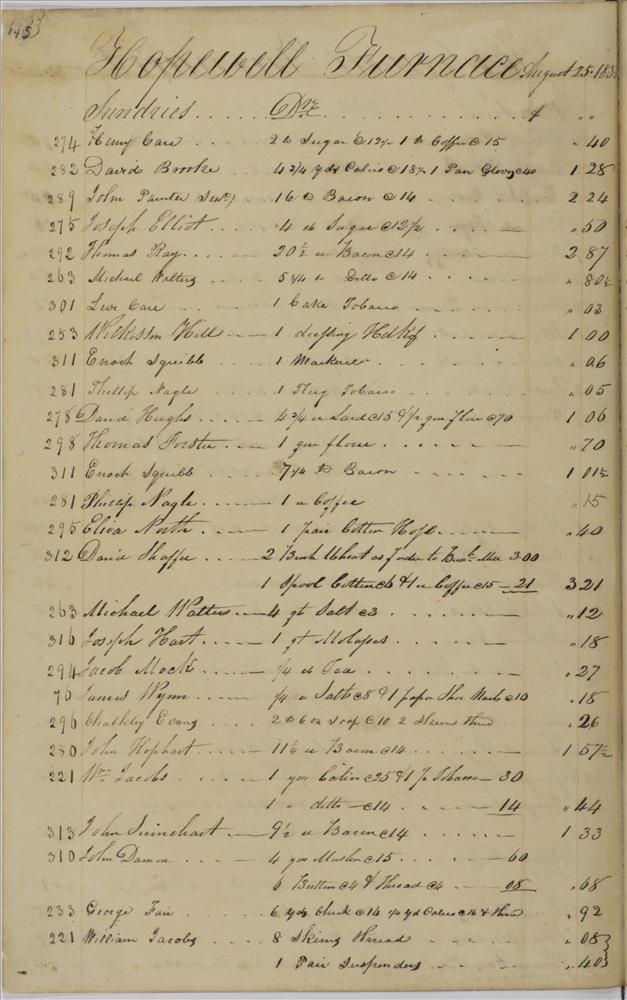 145
Hopewell Furnace August 25. 183
Sundries . . . . . . Drs . . . . . . . . . . $ ..
274 Henry Care . . . . 2 lb Sugar @ 12½ 1 lb Coffee @ 15 " 40
282 David Brooke . . . . 4 3/4 yds Calico @ 18¾ 1 Pair Gloves @ 40 1 28
289 John Painter . . 16 lb Bacon @ 14 . . . . . 2 24
275 Joseph Elliot . . . . 4 " Sugar @ 12½ . . . . " 50
292 Thomas Ray . . . . . 20½ " Bacon @ 14 . . . . . 2 87
263 Michael Walters . . . . 5 3/4 " Ditto @ 14 . . . . " 80½
301 Levi Care . . . . . 1 Cake Tobacco . . . . . " 03
253 Wilkison Hill . . 1 Hdkf . . . . . 1 00
311 Enoch Squibb . . . . 1 Mackerel . . . . . . " 06
281 Phillip Nagle . . . . 1 Plug Tobacco . . . . . " 05
278 David Hughs . . . . 4 3/4 " Lard @ 15 & ½ qur flour @ 70 1 06
298 Thomas Forster . . . 1 qur flour . . . . . . " 70
311 Enoch Squibb . . . . 7 1/4 lb Bacon . . . . . . 1 01½
281 Phillip Nagle . . . . . 1 " Coffee " 15
295 Eliva North . . . . 1 pair Cotton Hose . . . . . " 40
312 David Shaffer . . . . 2 Bush Wheat as order to 3.00
1 Spool Cotton @ 6 & 1 " Coffee @ 15 - 21 3 21
263 Michael Walters 4 qt Salt @ 3 . . . . . . " 12
316 Joseph Hart . . . . . 1 qt Molasses . . . . . " 18
294 Jacob Mock . . . . ¼ " Tea . . . . . . . " 27
76 James Wynn . . . . . ¼ " Salts @ 8 & 1 paper Shoe Nails @ 10 " 18
296 Chalkley Evans . . . . 2 lb 6 oz Soap @ 10 2 Skeins thread " 26
280 John Hephart . . . . . 11¼ " Bacon @ 14 . . . . . 1 57½
221 Wm Jacobs . . . . . 1 yard Calico @ 25 & 1 p Tobacco - 30
1 " ditto - @ 14 . . . . 14 " 44
313 John Suinehart . . 9½ " Bacon @ 14 . . . . . . 1 33
310 John Damon . . . . 4 yds Muslin @ 15 . . . . . 60
6 Buttons @ 4 & Thread @ 4 . . 08 " 68
233 George Fair . . . . . 6 yds Check @ 14 ¼ yd Calico @ 16 & thread " 92
221 William Jacobs . . . . 8 Skeins Thread . . . . . " 08
1 Pair Suspenders . . . . " 40